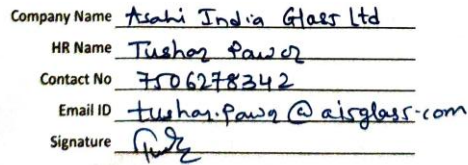 Company Name Asahi India Glass Ltd
HR Name Tushar Pawar
Contact No 7506278342
Email ID tushar.pawar@aisglass.com
Signature